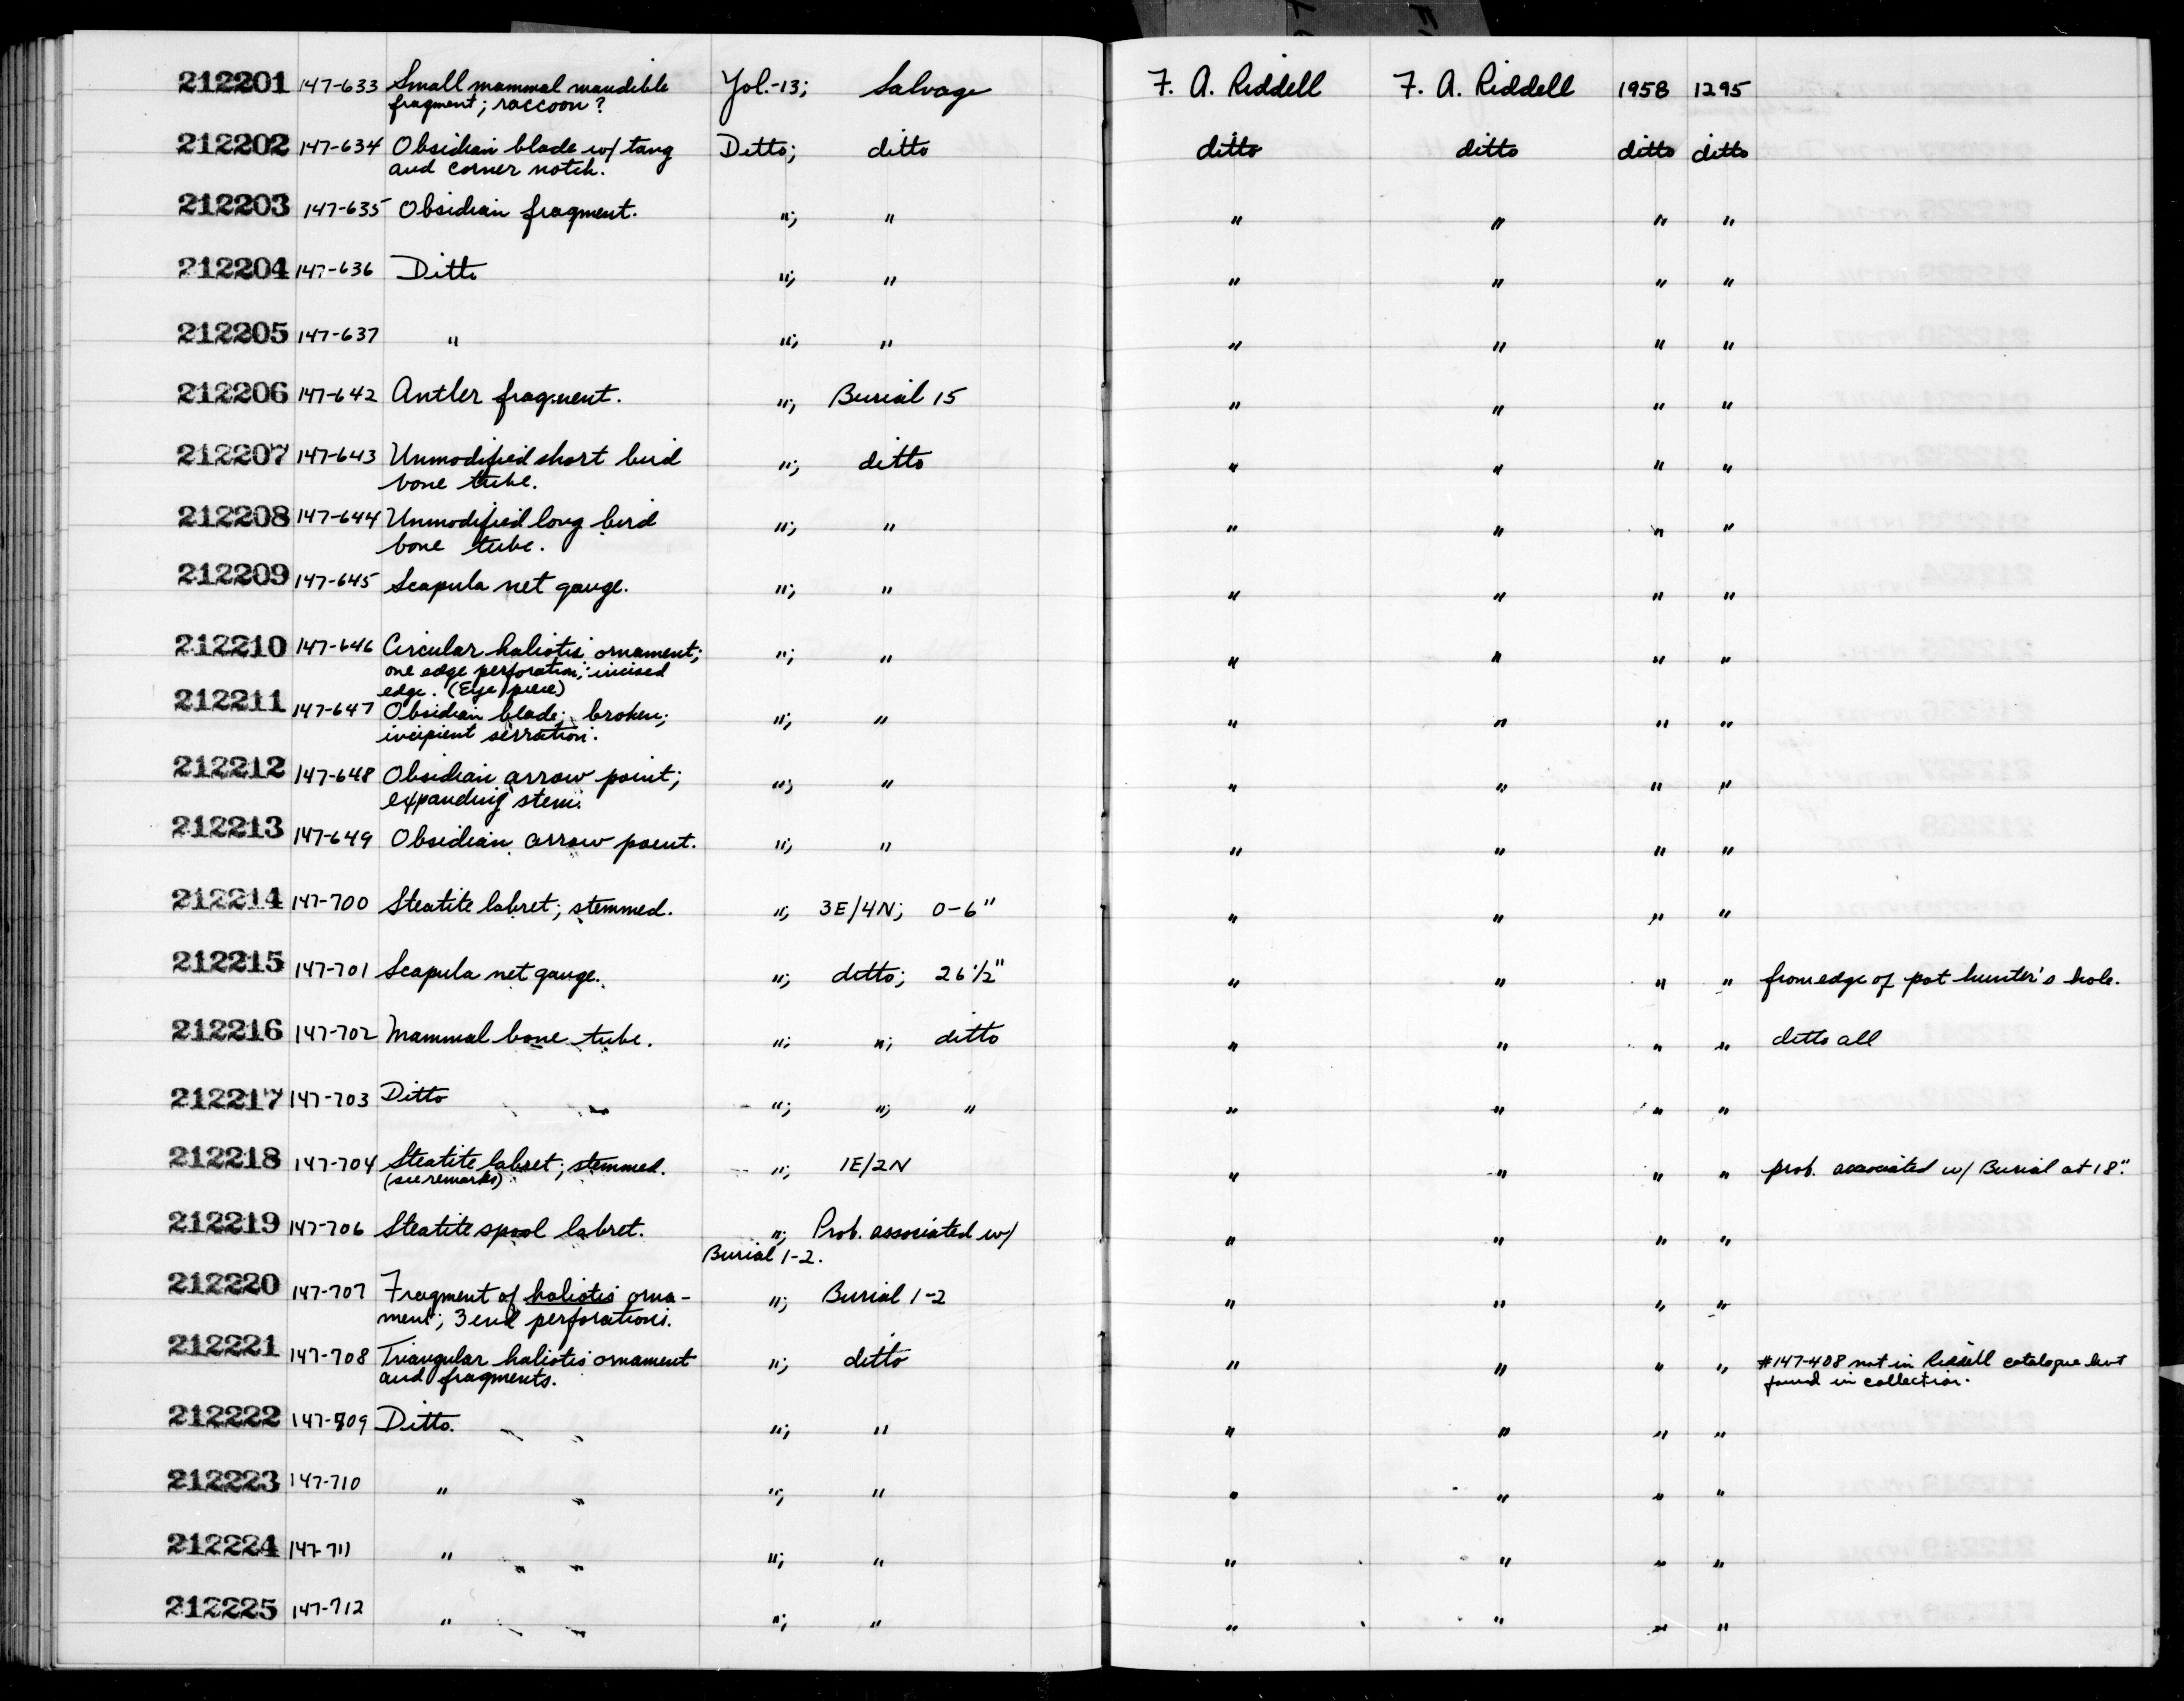 212201 147-633 Small mammal mandible Yol.-13; Salvage F. A. Riddell F. A. Riddell 1958 1295
fragment; raccoon?
212202 147-634 Obsidian blade w/ tang Ditto; ditto ditto ditto ditto ditto
and corner notch.
212203 147-635 Obsidian fragment. "; " " " " "
212204 147-636 Ditto "; " " " " "
212205 147-637 " "; " " " " "
212206 147-642 Antler fragment. "; Burial 15 " " " "
212207 147-643 Unmodified short bird "; ditto " " " "
bone tube.
212208 147-644 Unmodified long bird "; " " " " "
bone tube.
212209 147-645 Scapula net gauge. "; " " " " "
212210 147-646 Circular haliotis ornament; "; " " " " "
one edge perforation; incised
edge. (Eye piece)
212211 147-647 Obsidian blade; broken; "; " " " " "
incipient serration.
212212 147-648 Obsidian arrow point; "; " " " " "
expanding stem.
212213 147-649 Obsidian arrow point. "; " " " " "
212214 147-700 Steatite labret; stemmed. "; 3E/4N; 0-6" " " " "
212215 147-701 Scapula net gauge. "; ditto; 26 1/2" " " " " from edge of pot hunter's hole.
212216 147-702 Mammal bone tube. "; "; ditto " " " " ditto all
212217 147-703 Ditto "; "; " " " " "
212218 147-704 Steatite labret; stemmed. "; 1E/2N " " " " prob. associated w/ Burial at 18".
(see remarks)
212219 147-706 Steatite spool labret. "; Prob. associated w/ " " " "
Burial 1-2.
212220 147-707 Fragment of haliotis orna- "; Burial 1-2 " " " "
ment; 3 end perforations.
212221 147-708 Triangular haliotis ornament "; ditto " " " " #147-408 not in Riddell catalogue but
and fragments. found in collection.
212222 147-709 Ditto. "; " " " " "
212223 147-710 " "; " " " " "
212224 147-711 " "; " " " " "
212225 147-712 " "; " " " " "